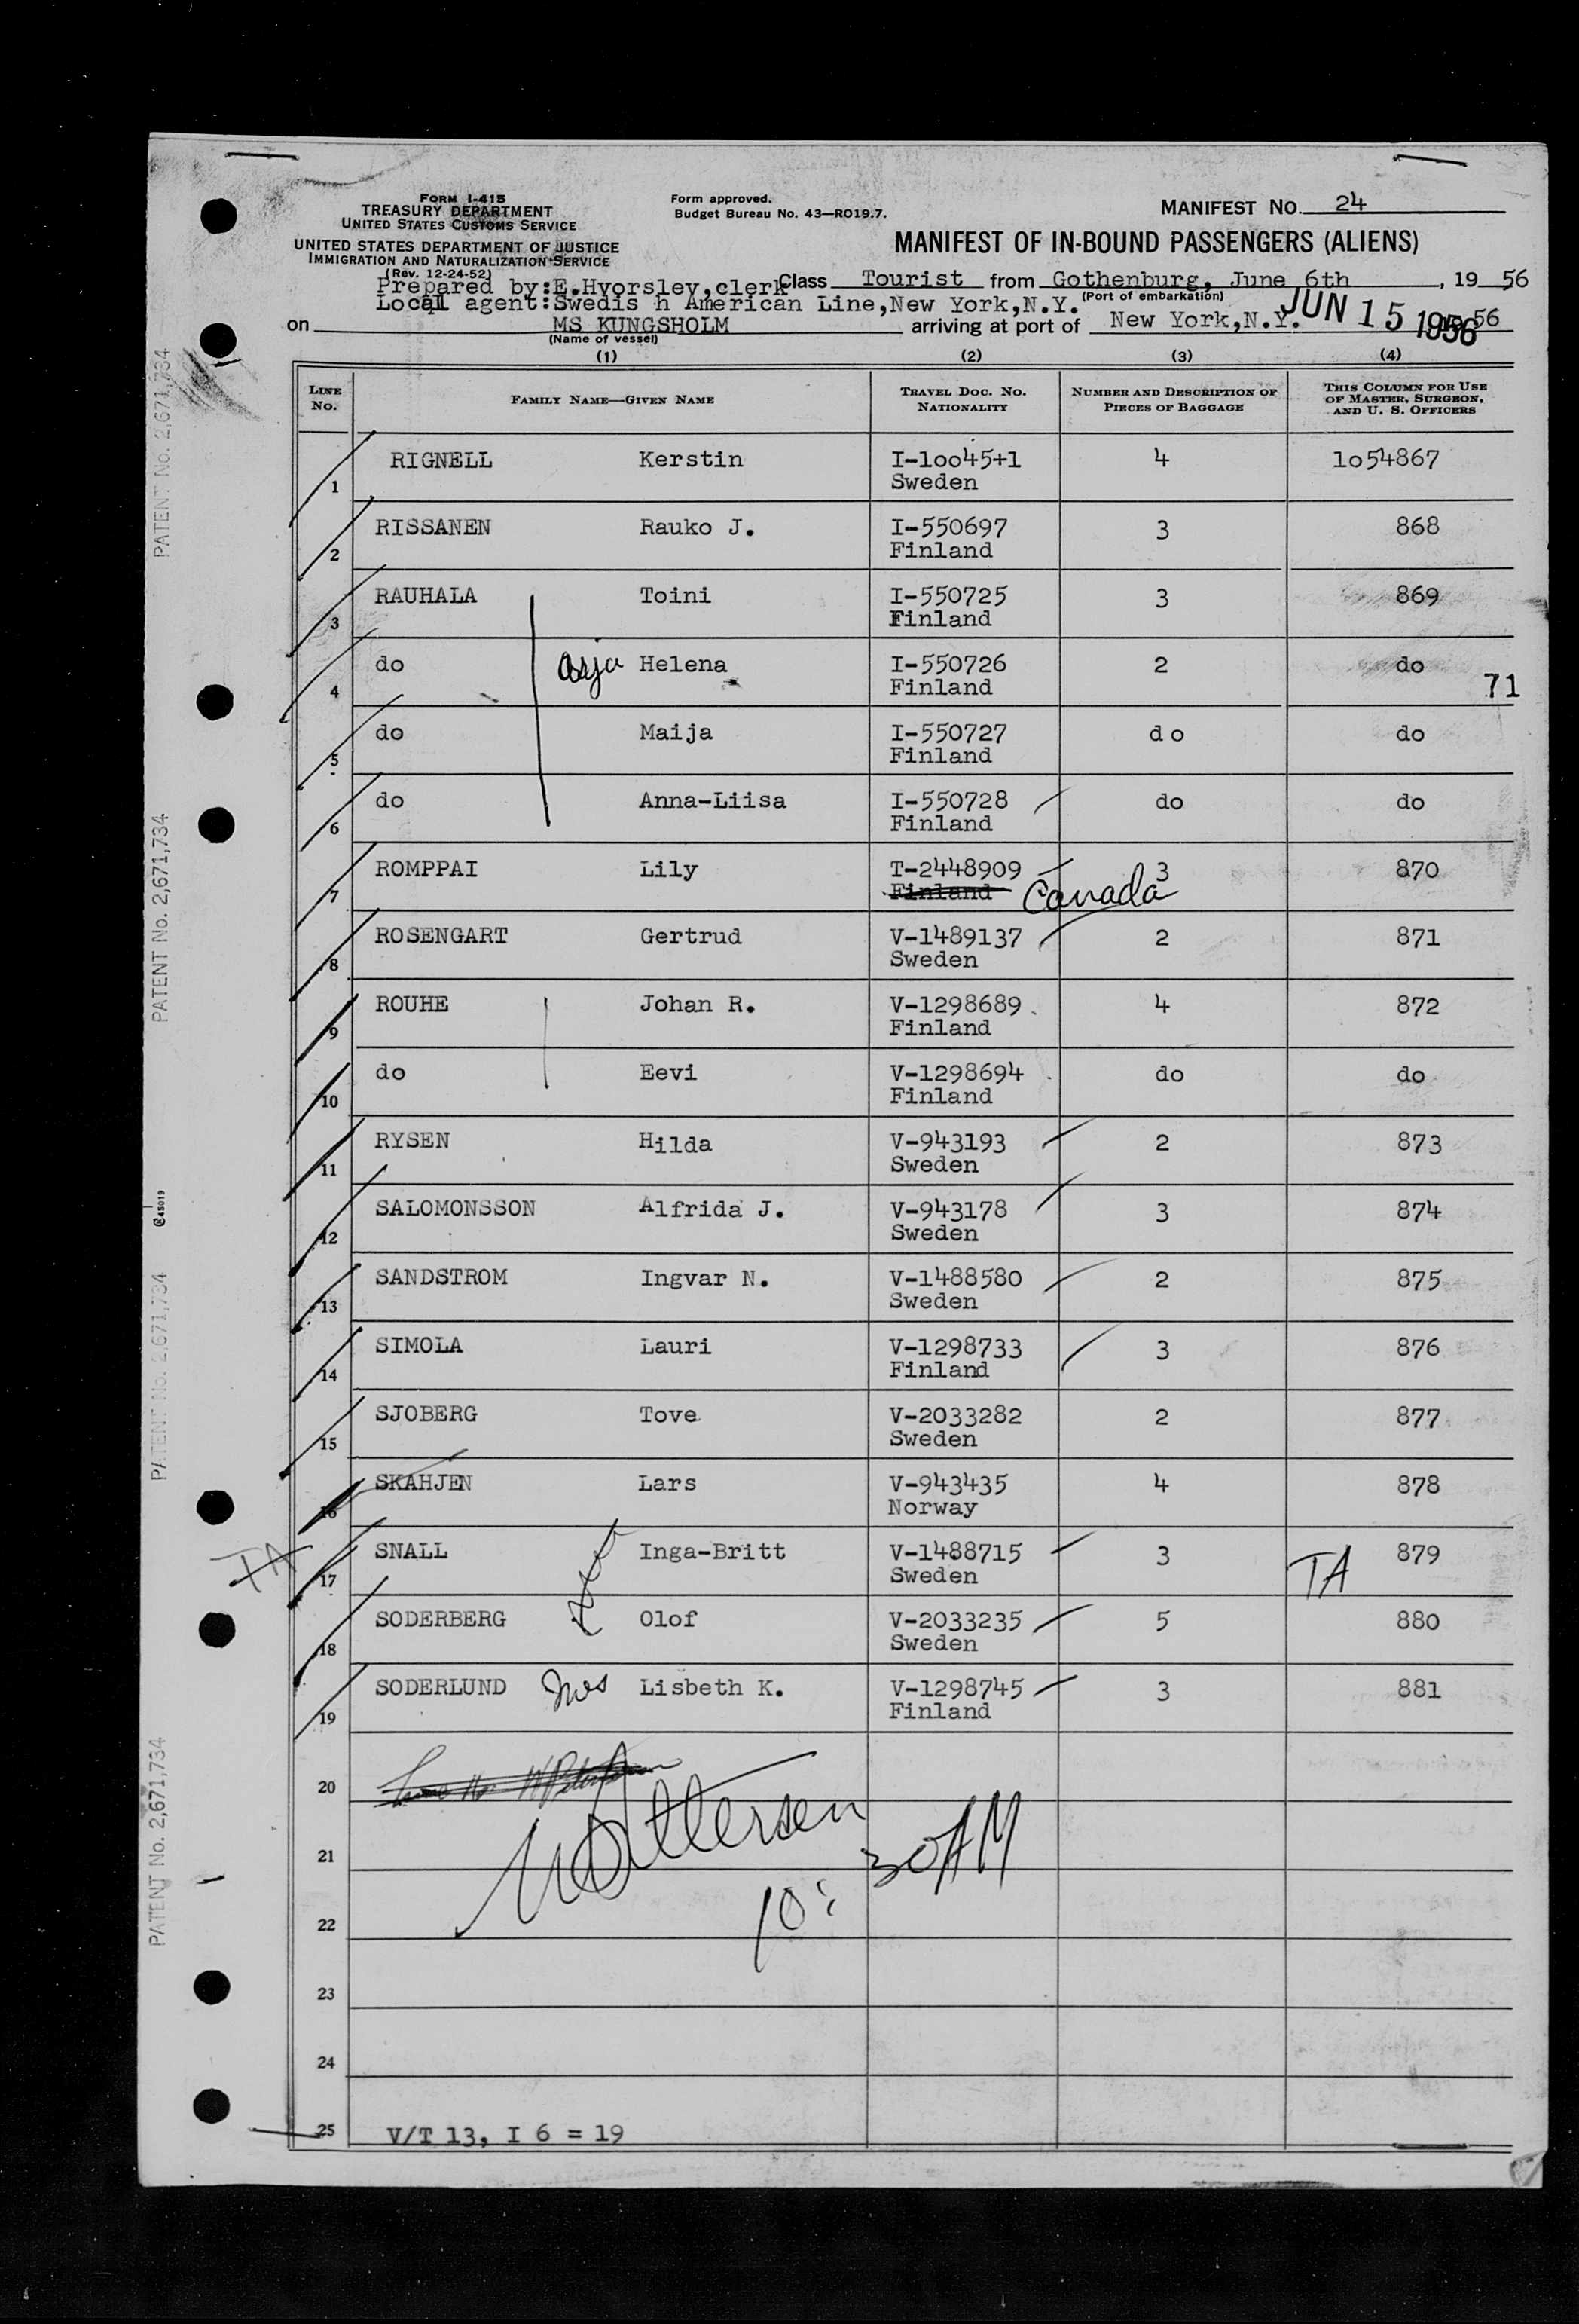 FORM I-415
TREASURY DEPARTMENT
UNITED STATES CUSTOMS SERVICE
UNITED STATES DEPARTMENT OF JUSTICE
IMMIGRATION AND NATURALIZATION SERVICE
(Rev. 12-24-52)
Form approved.
Budget Bureau No. 43—RO19.7.
MANIFEST NO. 24
MANIFEST OF IN-BOUND PASSENGERS (ALIENS)
Prepared by:E.Hvorslev,clerk Class Tourist from Gothenburg, June 6th, 19 56
Local agent:Swedis h American Line,New York,N.Y. (Port of embarkation)
on MS KUNGSHOLM arriving at port of New York,N.Y. JUN 15 1956 56
(Name of vessel)
(1) (2) (3) (4)
LINE No. FAMILY NAME—GIVEN NAME TRAVEL DOC. NO. NATIONALITY NUMBER AND DESCRIPTION OF PIECES OF BAGGAGE THIS COLUMN FOR USE OF MASTER, SURGEON, AND U. S. OFFICERS
1 RIGNELL Kerstin I-10045+1 4 1054867
Sweden
2 RISSANEN Rauko J. I-550697 3 868
Finland
3 RAUHALA Toini I-550725 3 869
Finland
4 do Asja Helena I-550726 2 do
Finland 71
5 do Maija I-550727 do do
Finland
6 do Anna-Liisa I-550728 do do
Finland
7 ROMPPAI Lily T-2448909 3 870
Finland Canada
8 ROSENGART Gertrud V-1489137 2 871
Sweden
9 ROUHE Johan R. V-1298689 4 872
Finland
10 do Eevi V-1298694 do do
Finland
11 RYSEN Hilda V-943193 2 873
Sweden
12 SALOMONSSON Alfrida J. V-943178 3 874
Sweden
13 SANDSTROM Ingvar N. V-1488580 2 875
Sweden
14 SIMOLA Lauri V-1298733 3 876
Finland
15 SJOBERG Tove V-2033282 2 877
Sweden
16 SKAHJEN Lars V-943435 4 878
Norway
TA 17 SNALL Inga-Britt V-1488715 3 TA 879
Sweden
18 SODERBERG Olof V-2033235 5 880
Sweden
19 SODERLUND Lisbeth K. V-1298745 3 881
Finland
20
21
10:30AM
22
23
24
25 V/T 13, I 6 = 19
PATENT No. 2,671,734
PATENT No. 2,671,734
PATENT No. 2,671,734
PATENT No. 2,671,734